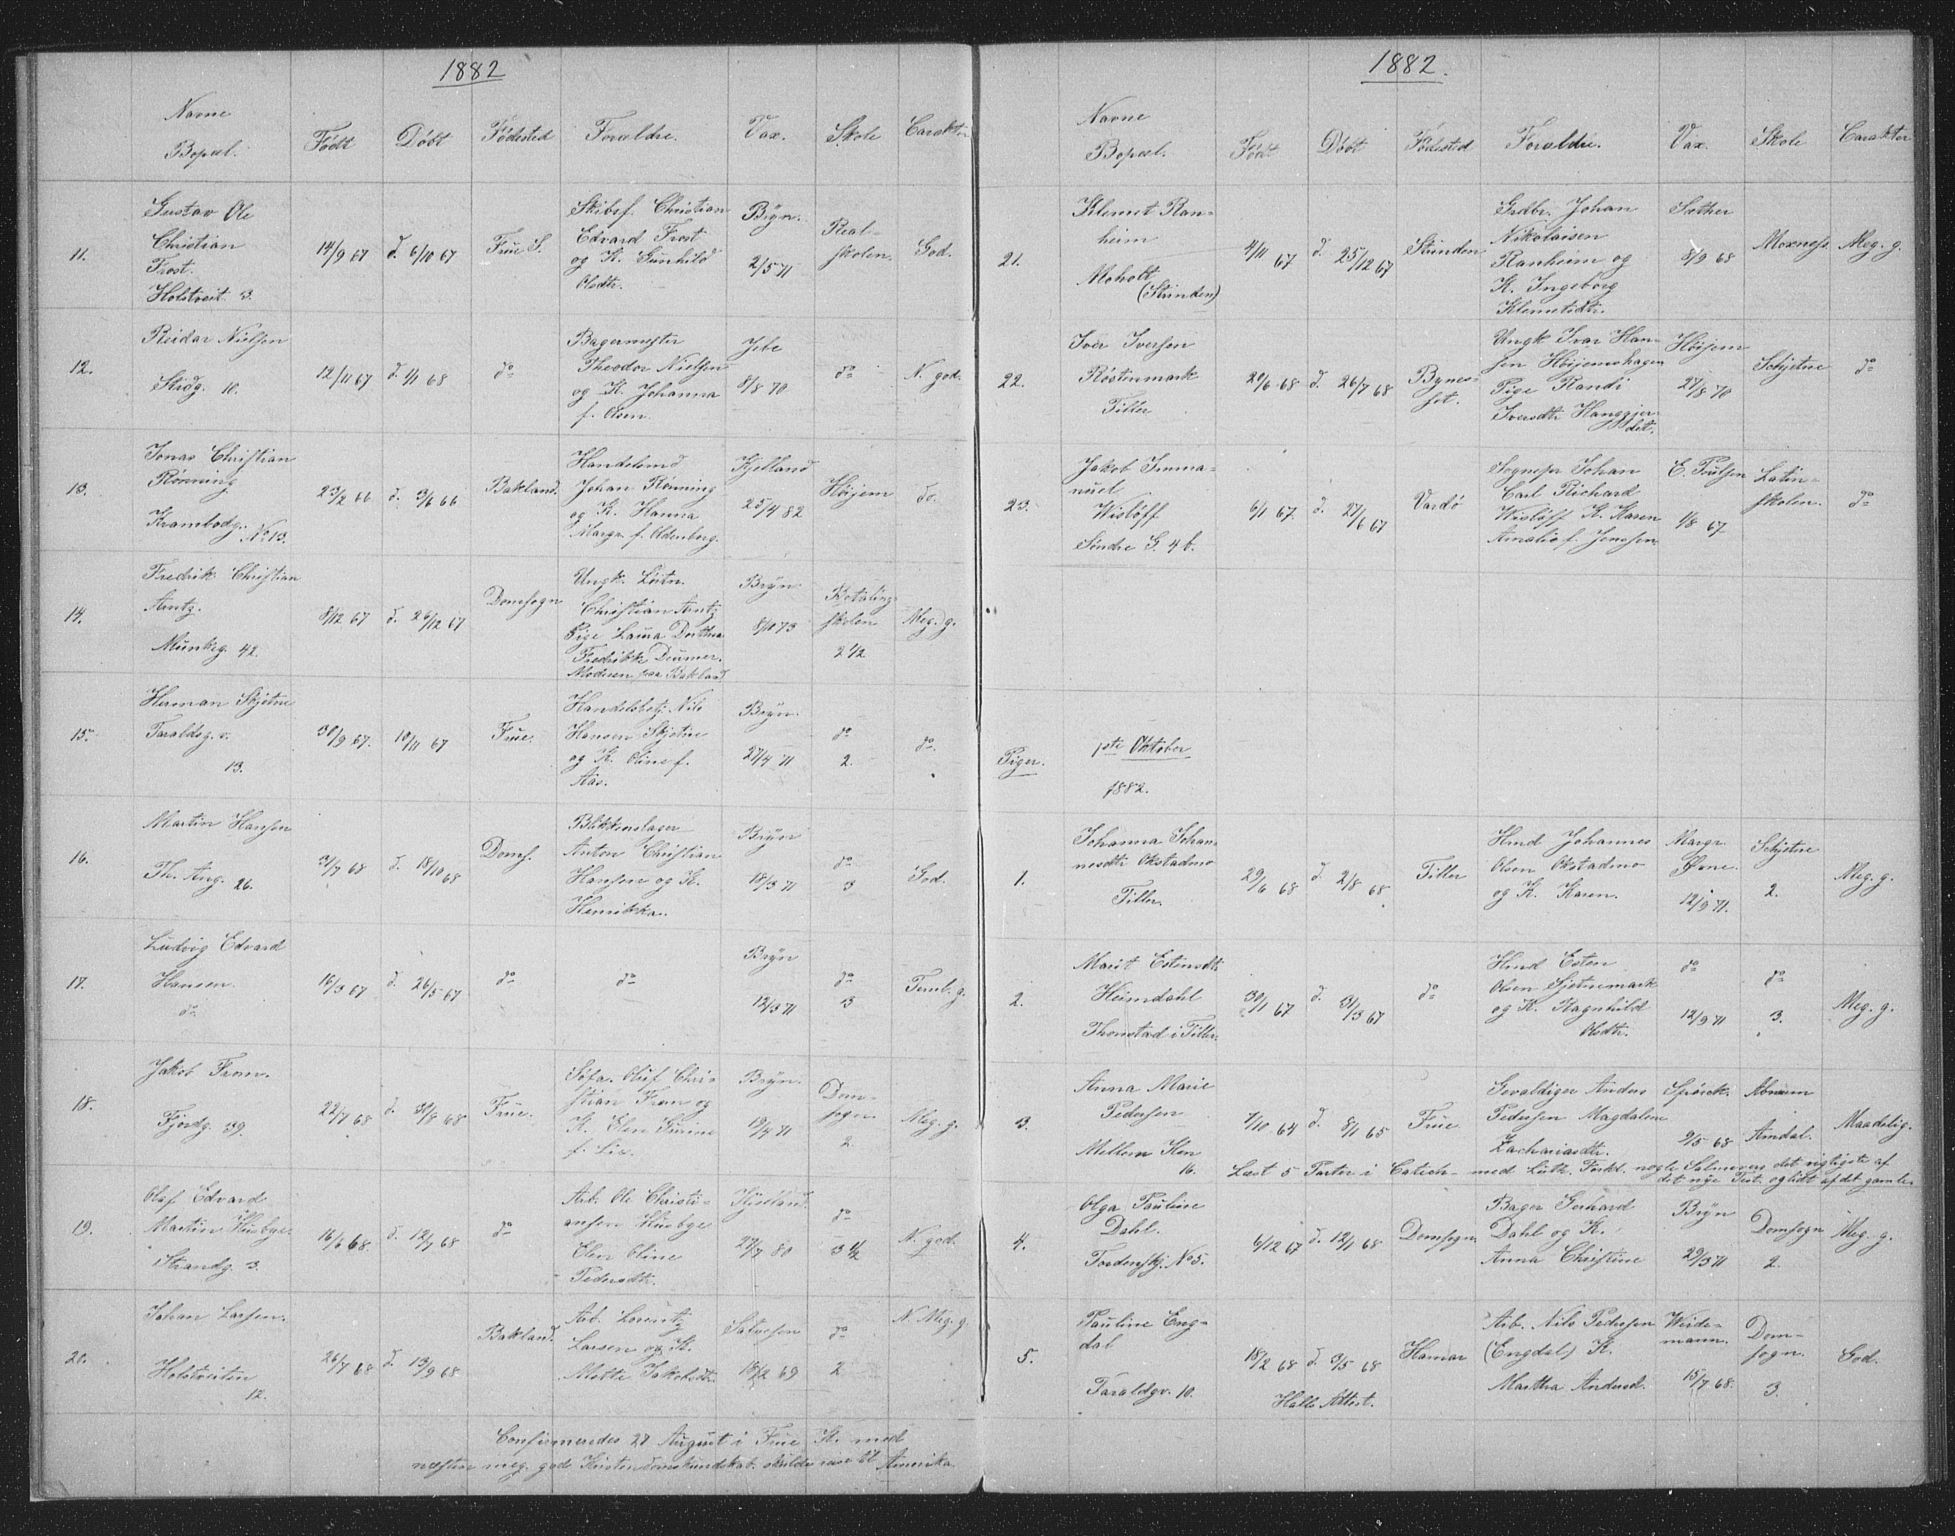 1882
Navne
Bopæl.
Født
Døbt
Fødested
Forældre.
Vax.
Skole
Carakter
11.
Gustav Ole
Christian
Frost.
Holstveit 3.
14/9 67
d. 6/10 67
Frue S.
Skibsf. Christian
Edvard Frost
og K. Gunhild
Olsdtr.
Bryn.
2/5 71
Real-
skolen.
God.
12.
Reidar Nielsen
Smdg. 10.
12/11 67
d. 1/1 68
do
Bagermester
Theodor Nielsen
og K. Johanna
f. Olsen.
8/8 70
do
N. god.
13.
Jonas Christian
Rønning
Krambodg. No 13.
23/2 66
d. 3/6 66
Bakland.
Handelsmd
Johan Rønning
og K. Hanna
Margr. f. Oldenberg.
Kjelland
25/4 82
Höijem
do.
14.
Fredrik Christian
Arntz.
Munkeg. 42.
8/12 67
d. 26/12 67
Domsogn
Ungk. Løitn.
Christian Arntz
Pige Laura Dorthea
Fredrikke Deumer.
Moderen paa Bakland
Bryn
8/10 73
Betaling
skolen
2 1/2
Meg. g.
15.
Herman Skjetne
Taraldsg. v.
13.
30/9 67.
10/11 67
Frue.
Handelsbetj. Nils
Hansen Skjetne
og K. Oline f.
Aas.
Bryn.
27/4 71
do
2.
do.
16.
Martin Hansen
Th. Ang. 26.
31/7 68
d. 18/10 68
Doms.
Blikkenslager
Anton Christian
Hansen og K.
Henrikka.
Bryn
18/3 71
do
3
God.
17.
Ludvig Edvard
Hansen.
do
16/3 67
d. 26/5 67
do
do
Bryn
12/3 71
do
3
Teml. g.
18.
Jakob Fram.
Fjordg. 39.
22/7 68
d. 30/8 68
Frue.
Søfa. Oluf Chris
stian Fram og
K. Elen Gurine
f. Lie.
Bryn.
19/4 71
Dom-
sogn.
2
Meg. g.
19.
Olaf Edvard
Martin Husbye.
Strandg. 3.
16/6 68.
d. 12/7 68
do
Arb. Ole Christi-
ansen Husbye
Elen Oline
Pedersdtr.
Kjelland.
27/7 80
do
3 1/2
N. god.
20.
Johan Larsen.
Holstveiten
12.
26/7 68
d. 13/9 68
Bakland.
Arb. Lorentz
Larsen og K.
Mette Jakobsdtr.
Salvesen
15/12 69
do
2
N. Meg. g.
Confirmeredes 27 August i Frue K. med
næsten meg. gode Kristendomskundskab. skulde reise til Amerika
1882.
Navne
Bopæl.
Født
Døbt
Fødested
Forældre.
Vax.
Skole
Carakter
21.
Klemet Ran-
heim
Moholt
(Strinden)
4/11 67
d. 25/12 67
Strinden
Grdbr. Johan
Nikolaisen
Ranheim og
K. Ingeborg
Klemetsdtr.
Sæther
8/9 68
Moxness.
Meg. g.
22.
Iver Iversen
Røstenmark
Tiller
20/6 68
d. 26/7 68
Bynes-
set.
Ungk Ivar Han-
sen Höijemshagen
Pige Randi
Iversdtr Hangjer-
det.
Höijem
27/8 70
Schjetne
do
23.
Jakob Imma-
nuel
Wisløff
Söndre G. 4 b.
6/1 67.
d. 27/6 67
Vardø
Sognepr Johan
Carl Richard
Wisløff K. Karen
Amalie f. Jenssen.
E. Poulsen
1/8 67
Latin-
skolen.
do
Piger.
1ste Oktober
1882.
1.
Johanna Johan-
nesdtr Okstadmo
Tiller.
29/6 68
d. 2/8 68
Tiller
Hmd Johannes
Olsen Okstadmo
og K. Karen.
Margr.
Øvne.
12/9 71.
Schjetne
2.
Meg. g.
2.
Marit Estensdtr
Heimdahl
Thonstad i Tiller
30/1 67
d. 31/3 67
do
Hmd Esten
Olsen Sjetnemark
og K. Ragnhild
Olsdtr.
do
12/9 71
do
3.
Meg. g.
3.
Anna Marie
Pedersen
Mellem Ilen
16.
7/10 64
d. 8/1 65
Frue
Gevaldiger Anders
Pedersen Magdalene
Zachariasdtr.
Spörck.
9/5 68
Abraam
Amdal.
Maadelig.
Læst 5 Parter i Catech. med Luth. Forkl. nogle Salmevers det vigtigste af
det nye Test. og lidt af det gamle
4.
Olga Pauline
Dahl.
Tordenskj. No 5.
6/12 67
d. 12/1 68
Domsogn.
Bager Gerhard
Dahl og K.
Anna Christine
Bryn
29/3 71
Domsogn
2.
Meg. g.
5.
Pauline Eng-
dal
Taraldgv. 10.
18/2 68
d. 3/5 68
Hamar
Arb. Nils Pedersen
(Engdal) K.
Marthea Andersd.
Weide-
mann.
15/7 68.
Dom-
sogn.
3.
God.
Halls Attest.